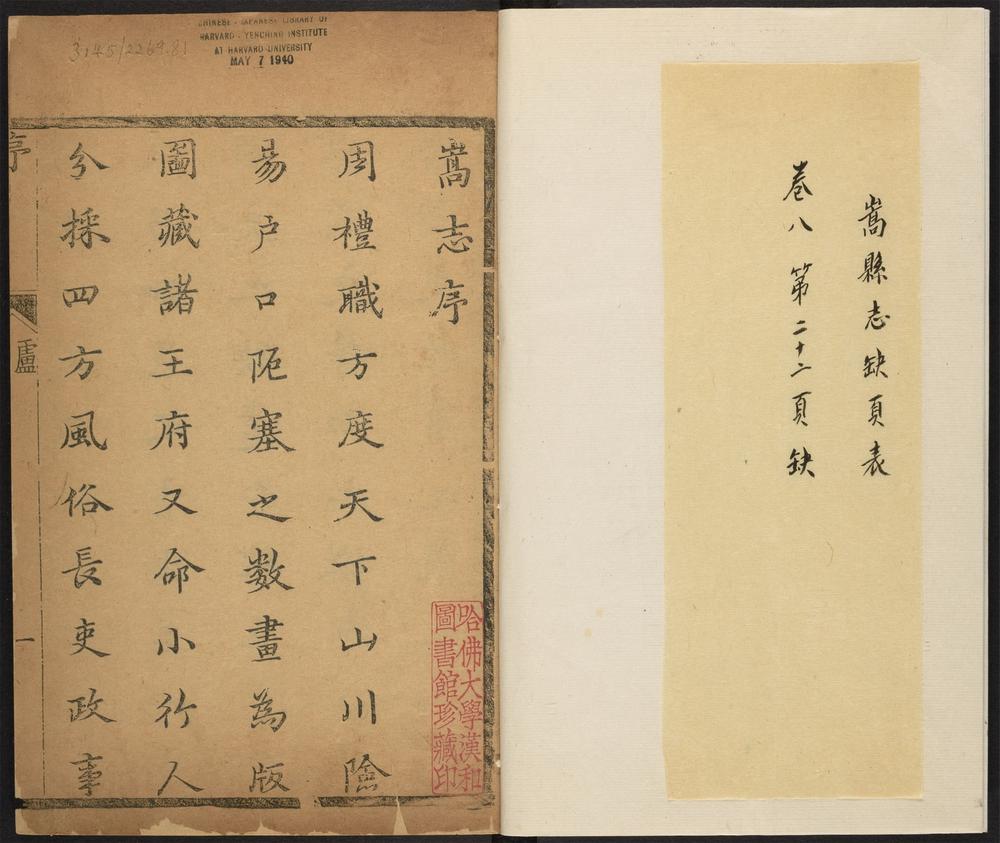 嵩縣志缺頁表
卷八第二十二頁缺
CHINESE - JAPANESE LIBRARY OF
HARVARD - YENCHING INSTITUTE
AT HARVARD UNIVERSITY
MAY 7 1940
3145/2269.81
嵩志序
周禮職方度天下山川險
易户口阨塞之數畫為版
圖藏諸王府又命小行人
分採四方風俗長吏政事
哈佛大學漢和
圖書館珍藏印
序
一